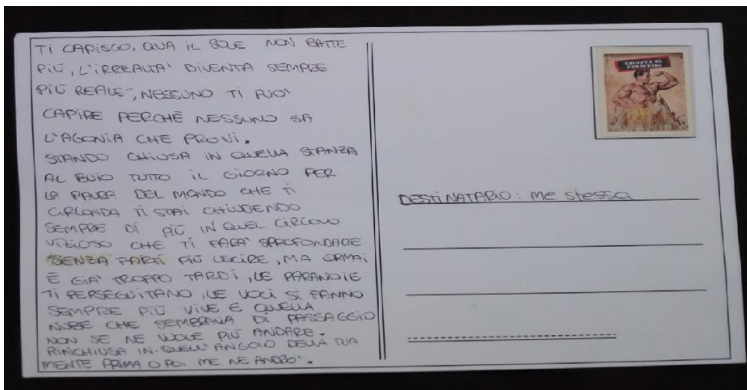 TI CAPISCO, QUA IL SOLE NON BATTE
PIÙ, L'IRREALTA' DIVENTA SEMPRE
PIÙ REALE, NESSUNO TI PUO'
CAPIRE PERCHÈ NESSUNO SA
L'AGONIA CHE PROVI.
STANDO CHIUSA IN QUELLA STANZA
AL BUIO TUTTO IL GIORNO PER
LA PAURA DEL MONDO CHE TI
CIRCONDA TI STAI CHIUDENDO
SEMPRE DI PIÙ IN QUEL CIRCOLO
VIZIOSO CHE TI FARÀ SPROFONDARE
SENZA FARTI PIÙ USCIRE, MA ORMAI
È GIA' TROPPO TARDI, LE PARANOIE
TI PERSEGUITANO, LE VOCI SI FANNO
SEMPRE PIÙ VIVE E QUELLA
NUBE CHE SEMBRAVA DI PASSAGGIO
NON SE NE VUOLE PIÙ ANDARE.
RINCHIUSA IN QUELL'ANGOLO DELLA TUA
MENTE PRIMA O POI ME NE ANDRO'.
DESTINATARIO: me stessa